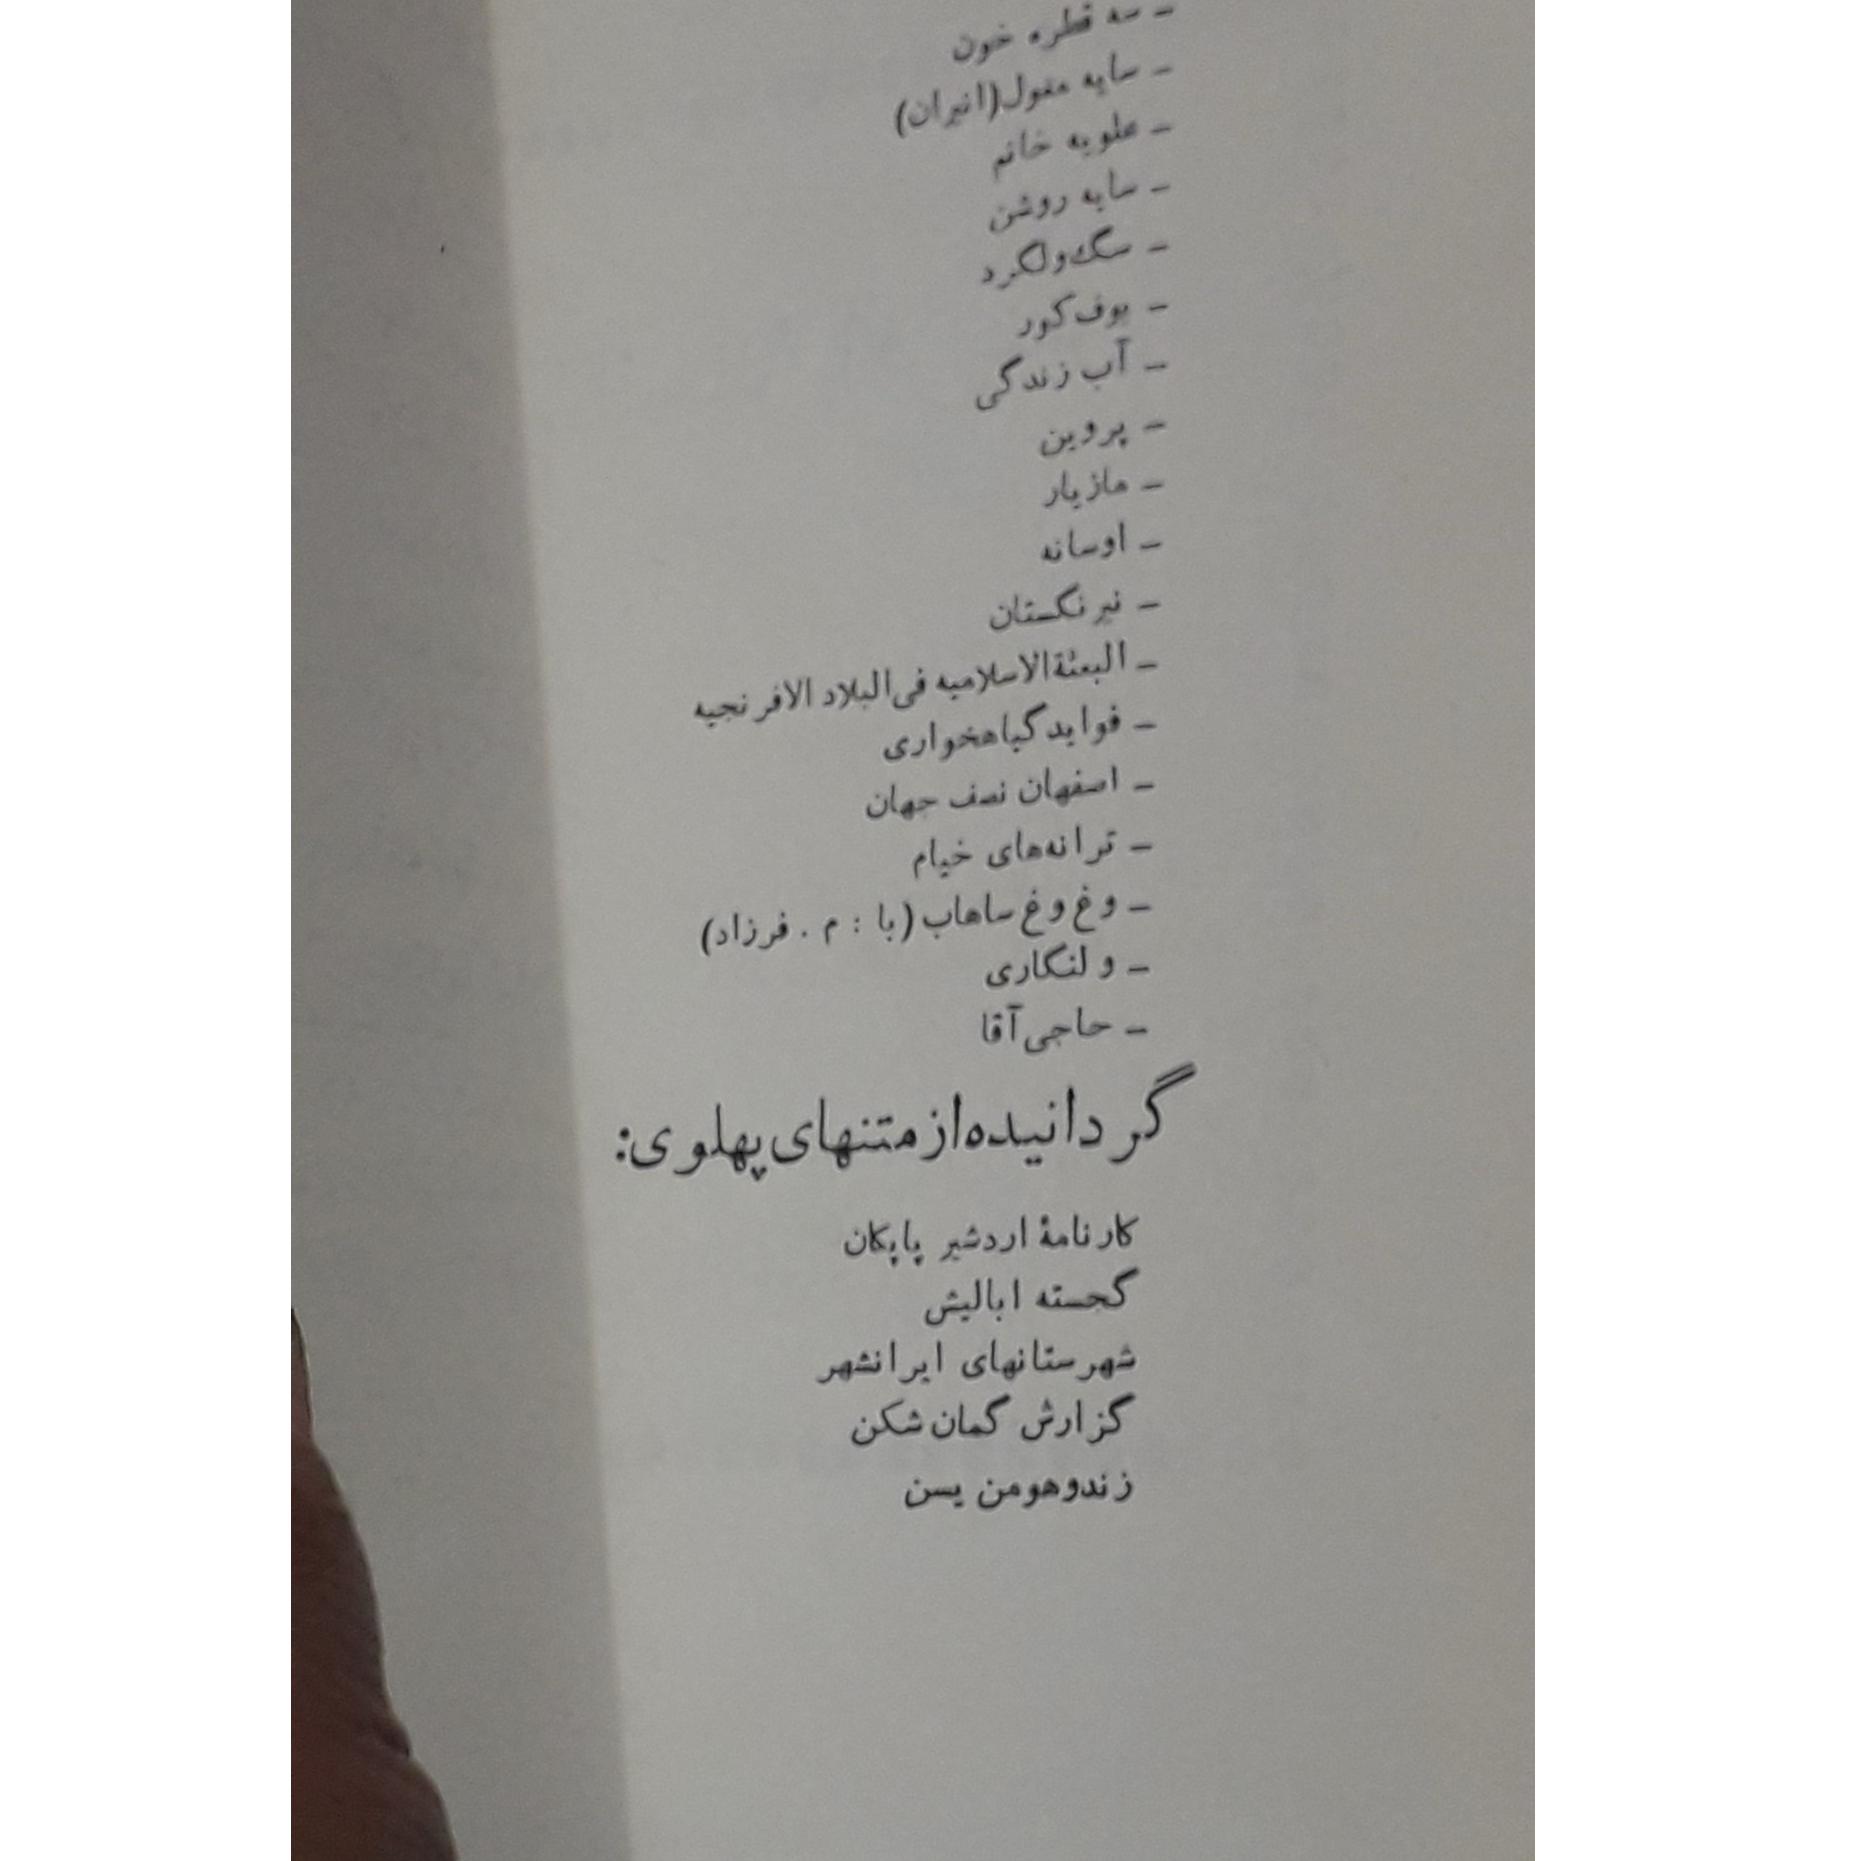 - سه قطره خون
- سایه مغول (انیران)
- علویه خانم
- سایه روشن
- سگ ولگرد
- بوف کور
- آب زندگی
- پروین
- مازیار
- اوسانه
- نیرنگستان
- البعثة الاسلامیه فی البلاد الافرنجیه
- فواید گیاهخواری
- اصفهان نصف جهان
- ترانه‌های خیام
- وغ وغ ساهاب (با : م . فرزاد)
- ولنگاری
- حاجی آقا
گردانیده از متنهای پهلوی:
کارنامهٔ اردشیر پاپکان
گجسته ابالیش
شهرستانهای ایرانشهر
گزارش گمان شکن
زند وهومن یسن